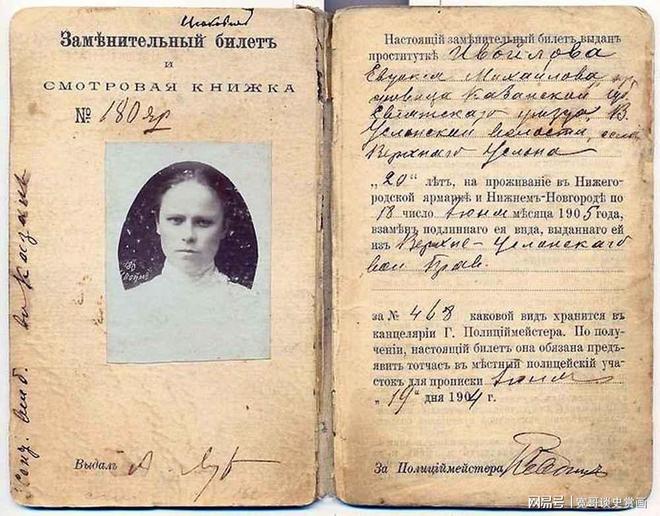 Замѣнительный билетъ
и
СМОТРОВАЯ КНИЖКА
№ 180 яр
Выдалъ
Настоящій замѣнительный билетъ выданъ
проституткѣ Ивойлова
Евдокія Михайлова, кр
Казанской губ.
Свіяжскаго уѣзда, В.
Услонской волости, села
Верхняго Услона
„20" лѣтъ, на проживаніе въ Нижего-
родской ярмаркѣ и Нижнемъ-Новгородѣ по
18 число Іюня мѣсяца 1905 года,
взамѣнъ подлиннаго ея вида, выданнаго ей
изъ Верхне-Услонскаго
вол Прав.
за № 463 каковой видъ хранится въ
канцеляріи Г. Полиціймейстера. По полу-
ченіи, настоящій билетъ она обязана предъ-
явить тотчасъ въ мѣстный полицейскій уча-
стокъ для прописки Іюня
„19" дня 1904 г.
За Полиціймейстера
网易号 | 宽哥谈史赏画